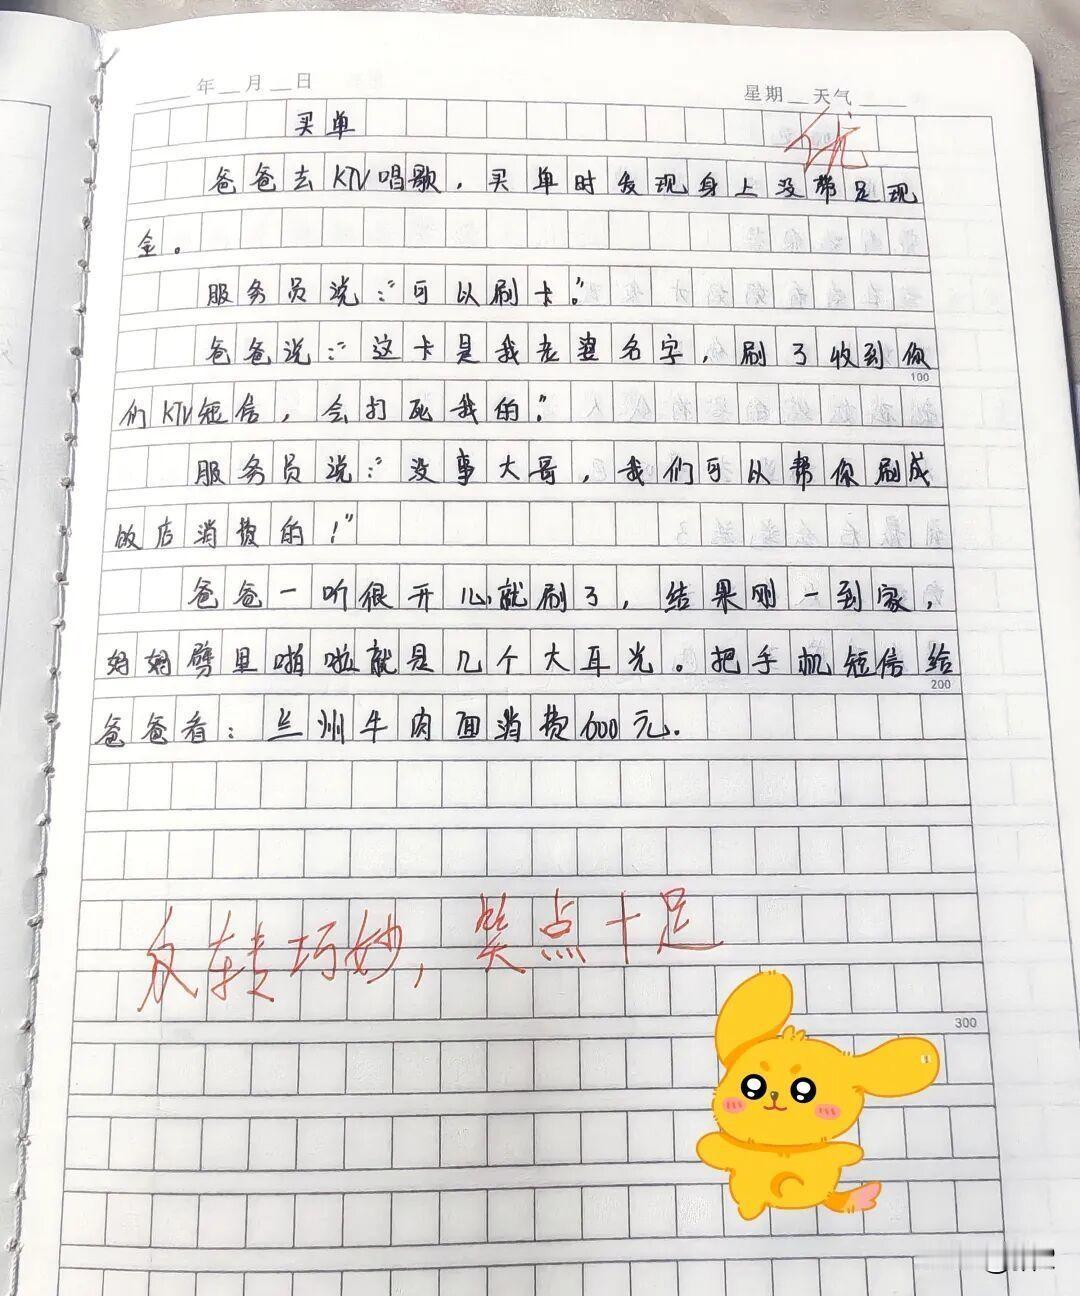 年 月 日 星期 天气
买单
优
爸爸去KTV唱歌，买单时发现身上没带足现
金。
服务员说：“可以刷卡。”
爸爸说：“这卡是我老婆名字，刷了收到你
100
们KTV短信，会打死我的。”
服务员说：“没事大哥，我们可以帮你刷成
饭店消费的！”
爸爸一听很开心就刷了，结果刚一到家，
妈妈劈里啪啦就是几个大耳光。把手机短信给
200
爸爸看：兰州牛肉面消费6000元.
反转巧妙，笑点十足
300